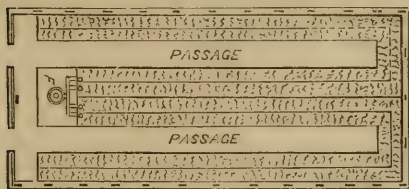 PASSAGE
PASSAGE